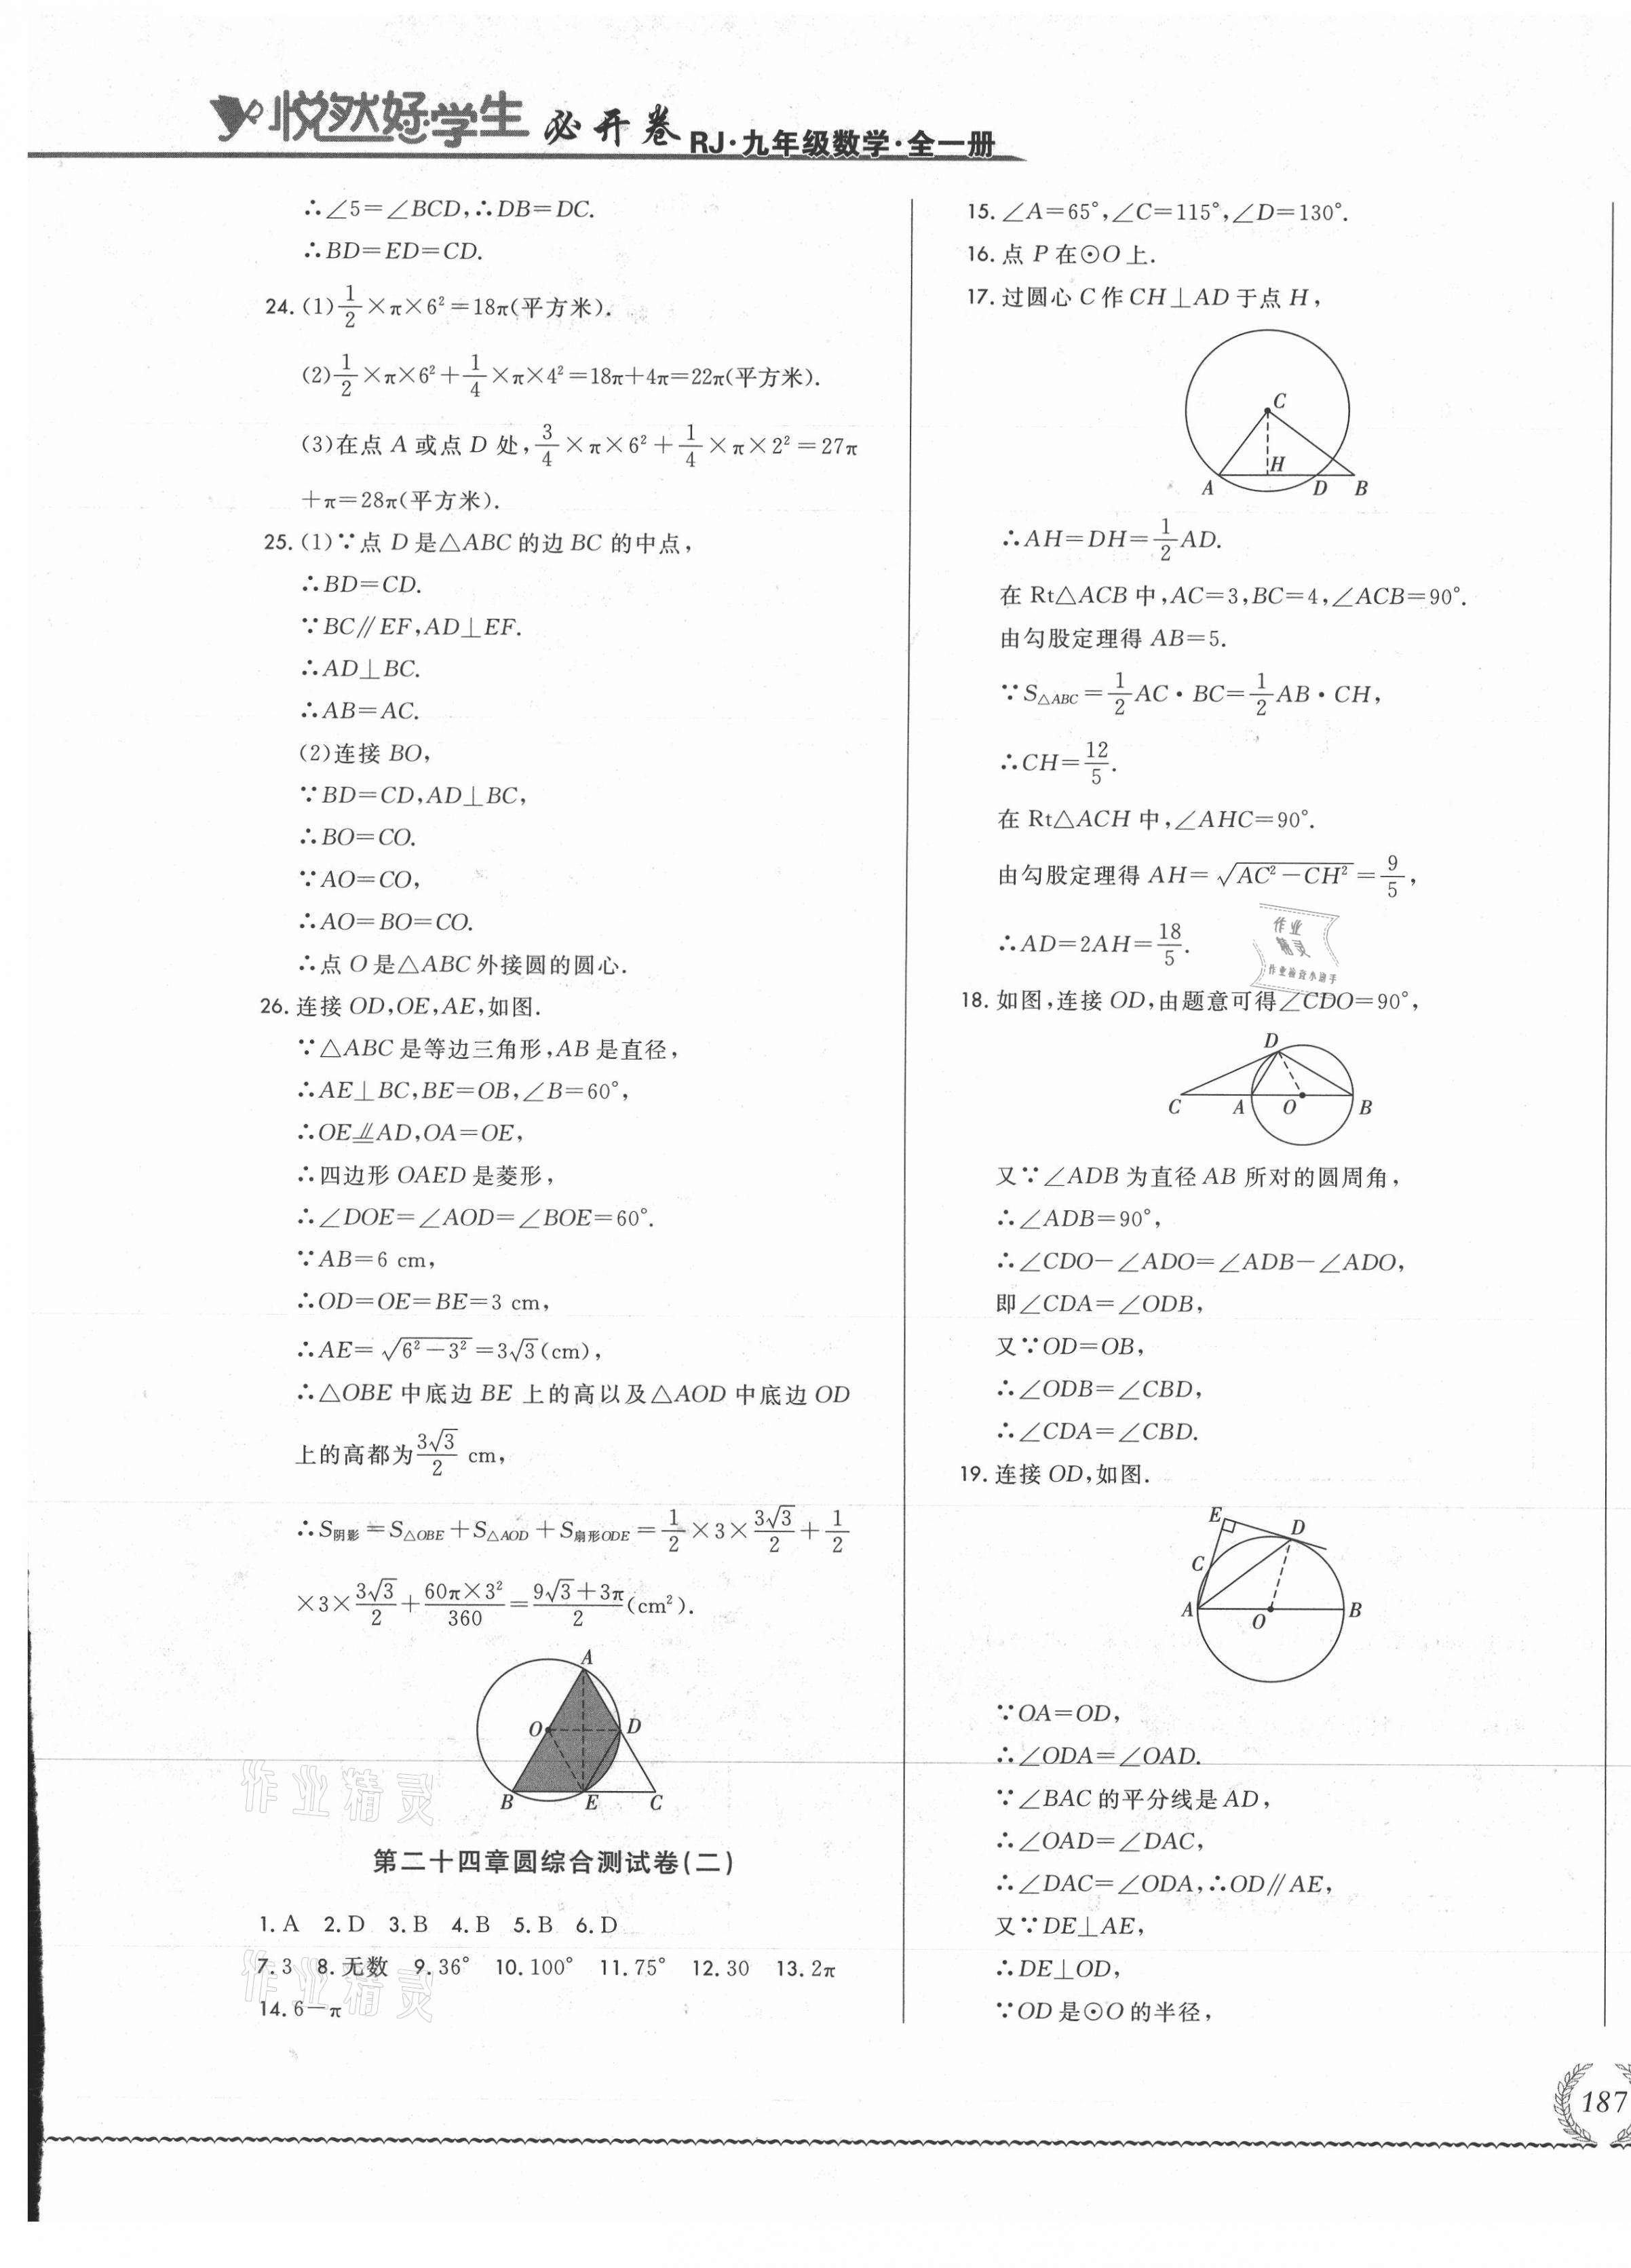 悦然好学生 必开卷 RJ·九年级数学·全一册
∴∠5=∠BCD,∴DB=DC.
∴BD=ED=CD.
24.(1)1/2×π×6²=18π(平方米).
(2)1/2×π×6²+1/4×π×4²=18π+4π=22π(平方米).
(3)在点 A 或点 D 处,3/4×π×6²+1/4×π×2²=27π
+π=28π(平方米).
25.(1)∵点 D 是△ABC 的边 BC 的中点,
∴BD=CD.
∵BC∥EF,AD⊥EF.
∴AD⊥BC.
∴AB=AC.
(2)连接 BO,
∵BD=CD,AD⊥BC,
∴BO=CO.
∵AO=CO,
∴AO=BO=CO.
∴点 O 是△ABC 外接圆的圆心.
26.连接 OD,OE,AE,如图.
∵△ABC 是等边三角形,AB 是直径,
∴AE⊥BC,BE=OB,∠B=60°,
∴OE⫫AD,OA=OE,
∴四边形 OAED 是菱形,
∴∠DOE=∠AOD=∠BOE=60°.
∵AB=6 cm,
∴OD=OE=BE=3 cm,
∴AE=√(6²-3²)=3√3(cm),
∴△OBE 中底边 BE 上的高以及△AOD 中底边 OD
上的高都为3√3/2 cm,
∴S阴影=S△OBE+S△AOD+S扇形ODE=1/2×3×3√3/2+1/2
×3×3√3/2+60π×3²/360=(9√3+3π)/2(cm²).
A
O
D
B
E
C
第二十四章圆综合测试卷(二)
1.A 2.D 3.B 4.B 5.B 6.D
7.3 8.无数 9.36° 10.100° 11.75° 12.30 13.2π
14.6-π
作业精灵
作业精灵
15.∠A=65°,∠C=115°,∠D=130°.
16.点 P 在⊙O 上.
17.过圆心 C 作 CH⊥AD 于点 H,
C
H
A
D
B
∴AH=DH=1/2AD.
在 Rt△ACB 中,AC=3,BC=4,∠ACB=90°.
由勾股定理得 AB=5.
∵S△ABC=1/2AC·BC=1/2AB·CH,
∴CH=12/5.
在 Rt△ACH 中,∠AHC=90°.
由勾股定理得 AH=√(AC²-CH²)=9/5,
∴AD=2AH=18/5.
作业
精灵
作业检查小助手
18.如图,连接 OD,由题意可得∠CDO=90°,
D
C
A
O
B
又∵∠ADB 为直径 AB 所对的圆周角,
∴∠ADB=90°,
∴∠CDO-∠ADO=∠ADB-∠ADO,
即∠CDA=∠ODB,
又∵OD=OB,
∴∠ODB=∠CBD,
∴∠CDA=∠CBD.
19.连接 OD,如图.
E
D
C
A
O
B
∵OA=OD,
∴∠ODA=∠OAD.
∵∠BAC 的平分线是 AD,
∴∠OAD=∠DAC,
∴∠DAC=∠ODA,∴OD∥AE,
又∵DE⊥AE,
∴DE⊥OD,
∵OD 是⊙O 的半径,
187